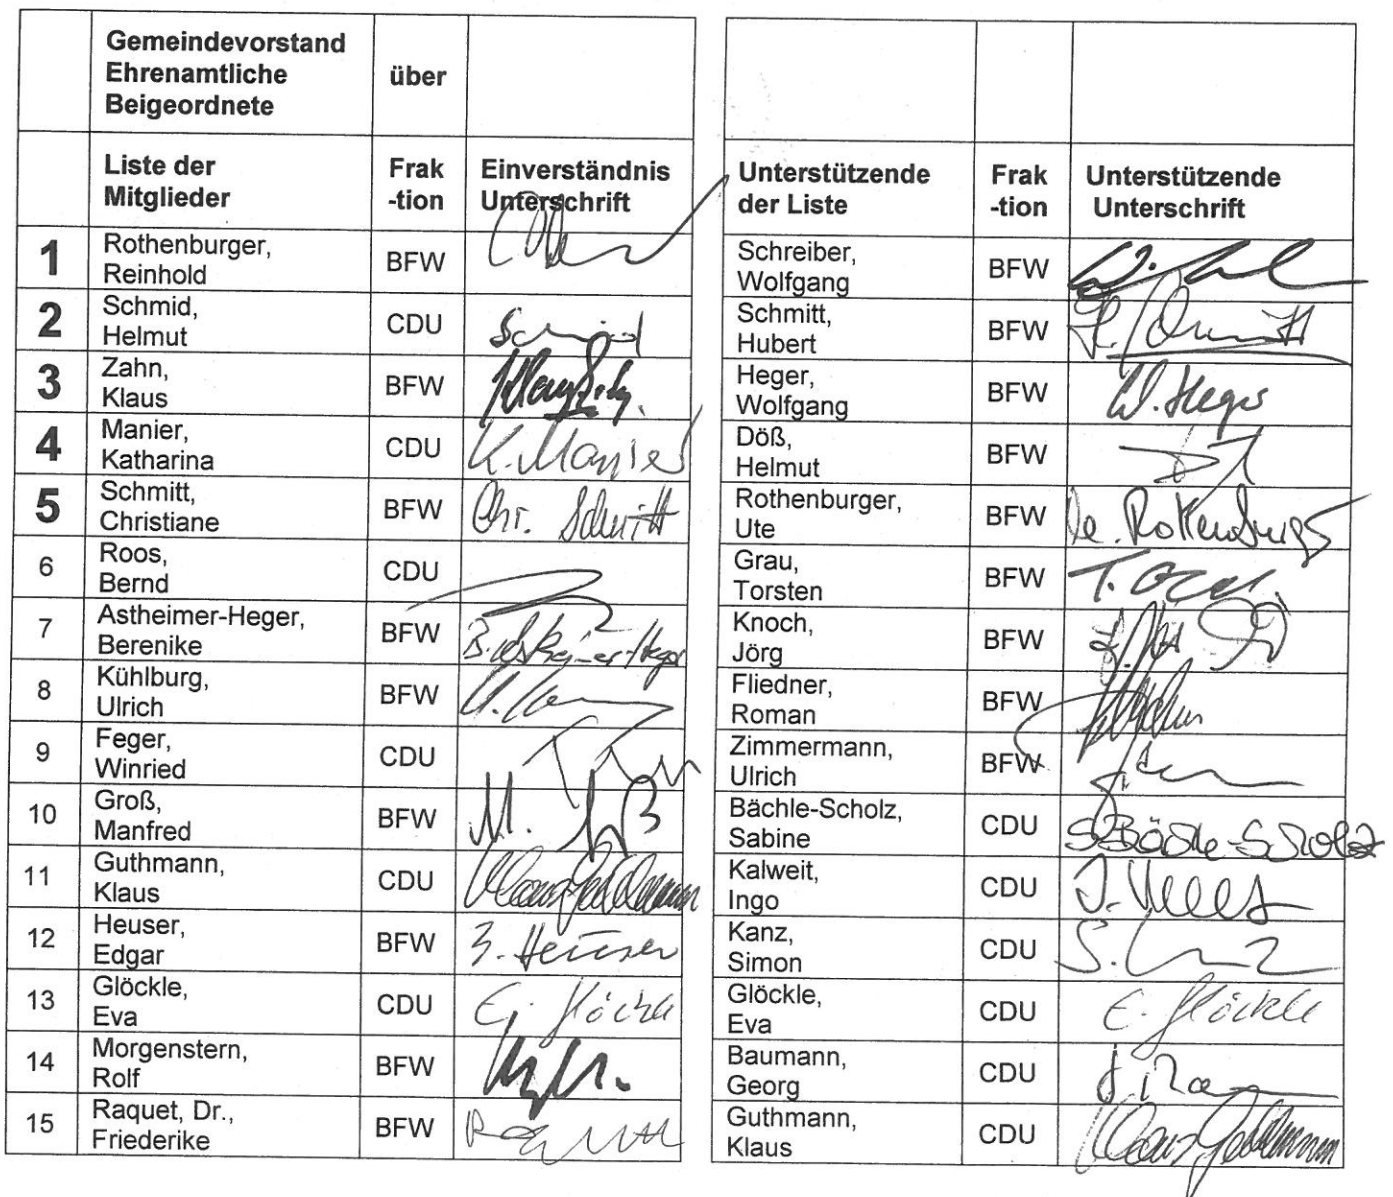 Gemeindevorstand
Ehrenamtliche
Beigeordnete
über
Liste der
Mitglieder
Frak
-tion
Einverständnis
Unterschrift
1
Rothenburger,
Reinhold
BFW
2
Schmid,
Helmut
CDU
Schmid
3
Zahn,
Klaus
BFW
4
Manier,
Katharina
CDU
K. Manier
5
Schmitt,
Christiane
BFW
Chr. Schmitt
6
Roos,
Bernd
CDU
7
Astheimer-Heger,
Berenike
BFW
B. Astheimer-Heger
8
Kühlburg,
Ulrich
BFW
9
Feger,
Winried
CDU
10
Groß,
Manfred
BFW
11
Guthmann,
Klaus
CDU
Klaus Guthmann
12
Heuser,
Edgar
BFW
Heuser
13
Glöckle,
Eva
CDU
E. Glöckle
14
Morgenstern,
Rolf
BFW
15
Raquet, Dr.,
Friederike
BFW
Unterstützende
der Liste
Frak
-tion
Unterstützende
Unterschrift
Schreiber,
Wolfgang
BFW
Schmitt,
Hubert
BFW
Heger,
Wolfgang
BFW
W. Heger
Döß,
Helmut
BFW
Rothenburger,
Ute
BFW
Rothenburger
Grau,
Torsten
BFW
T. Grau
Knoch,
Jörg
BFW
Fliedner,
Roman
BFW
Zimmermann,
Ulrich
BFW
Bächle-Scholz,
Sabine
CDU
S. Bächle-Scholz
Kalweit,
Ingo
CDU
Kanz,
Simon
CDU
Glöckle,
Eva
CDU
E. Glöckle
Baumann,
Georg
CDU
Guthmann,
Klaus
CDU
Klaus Guthmann